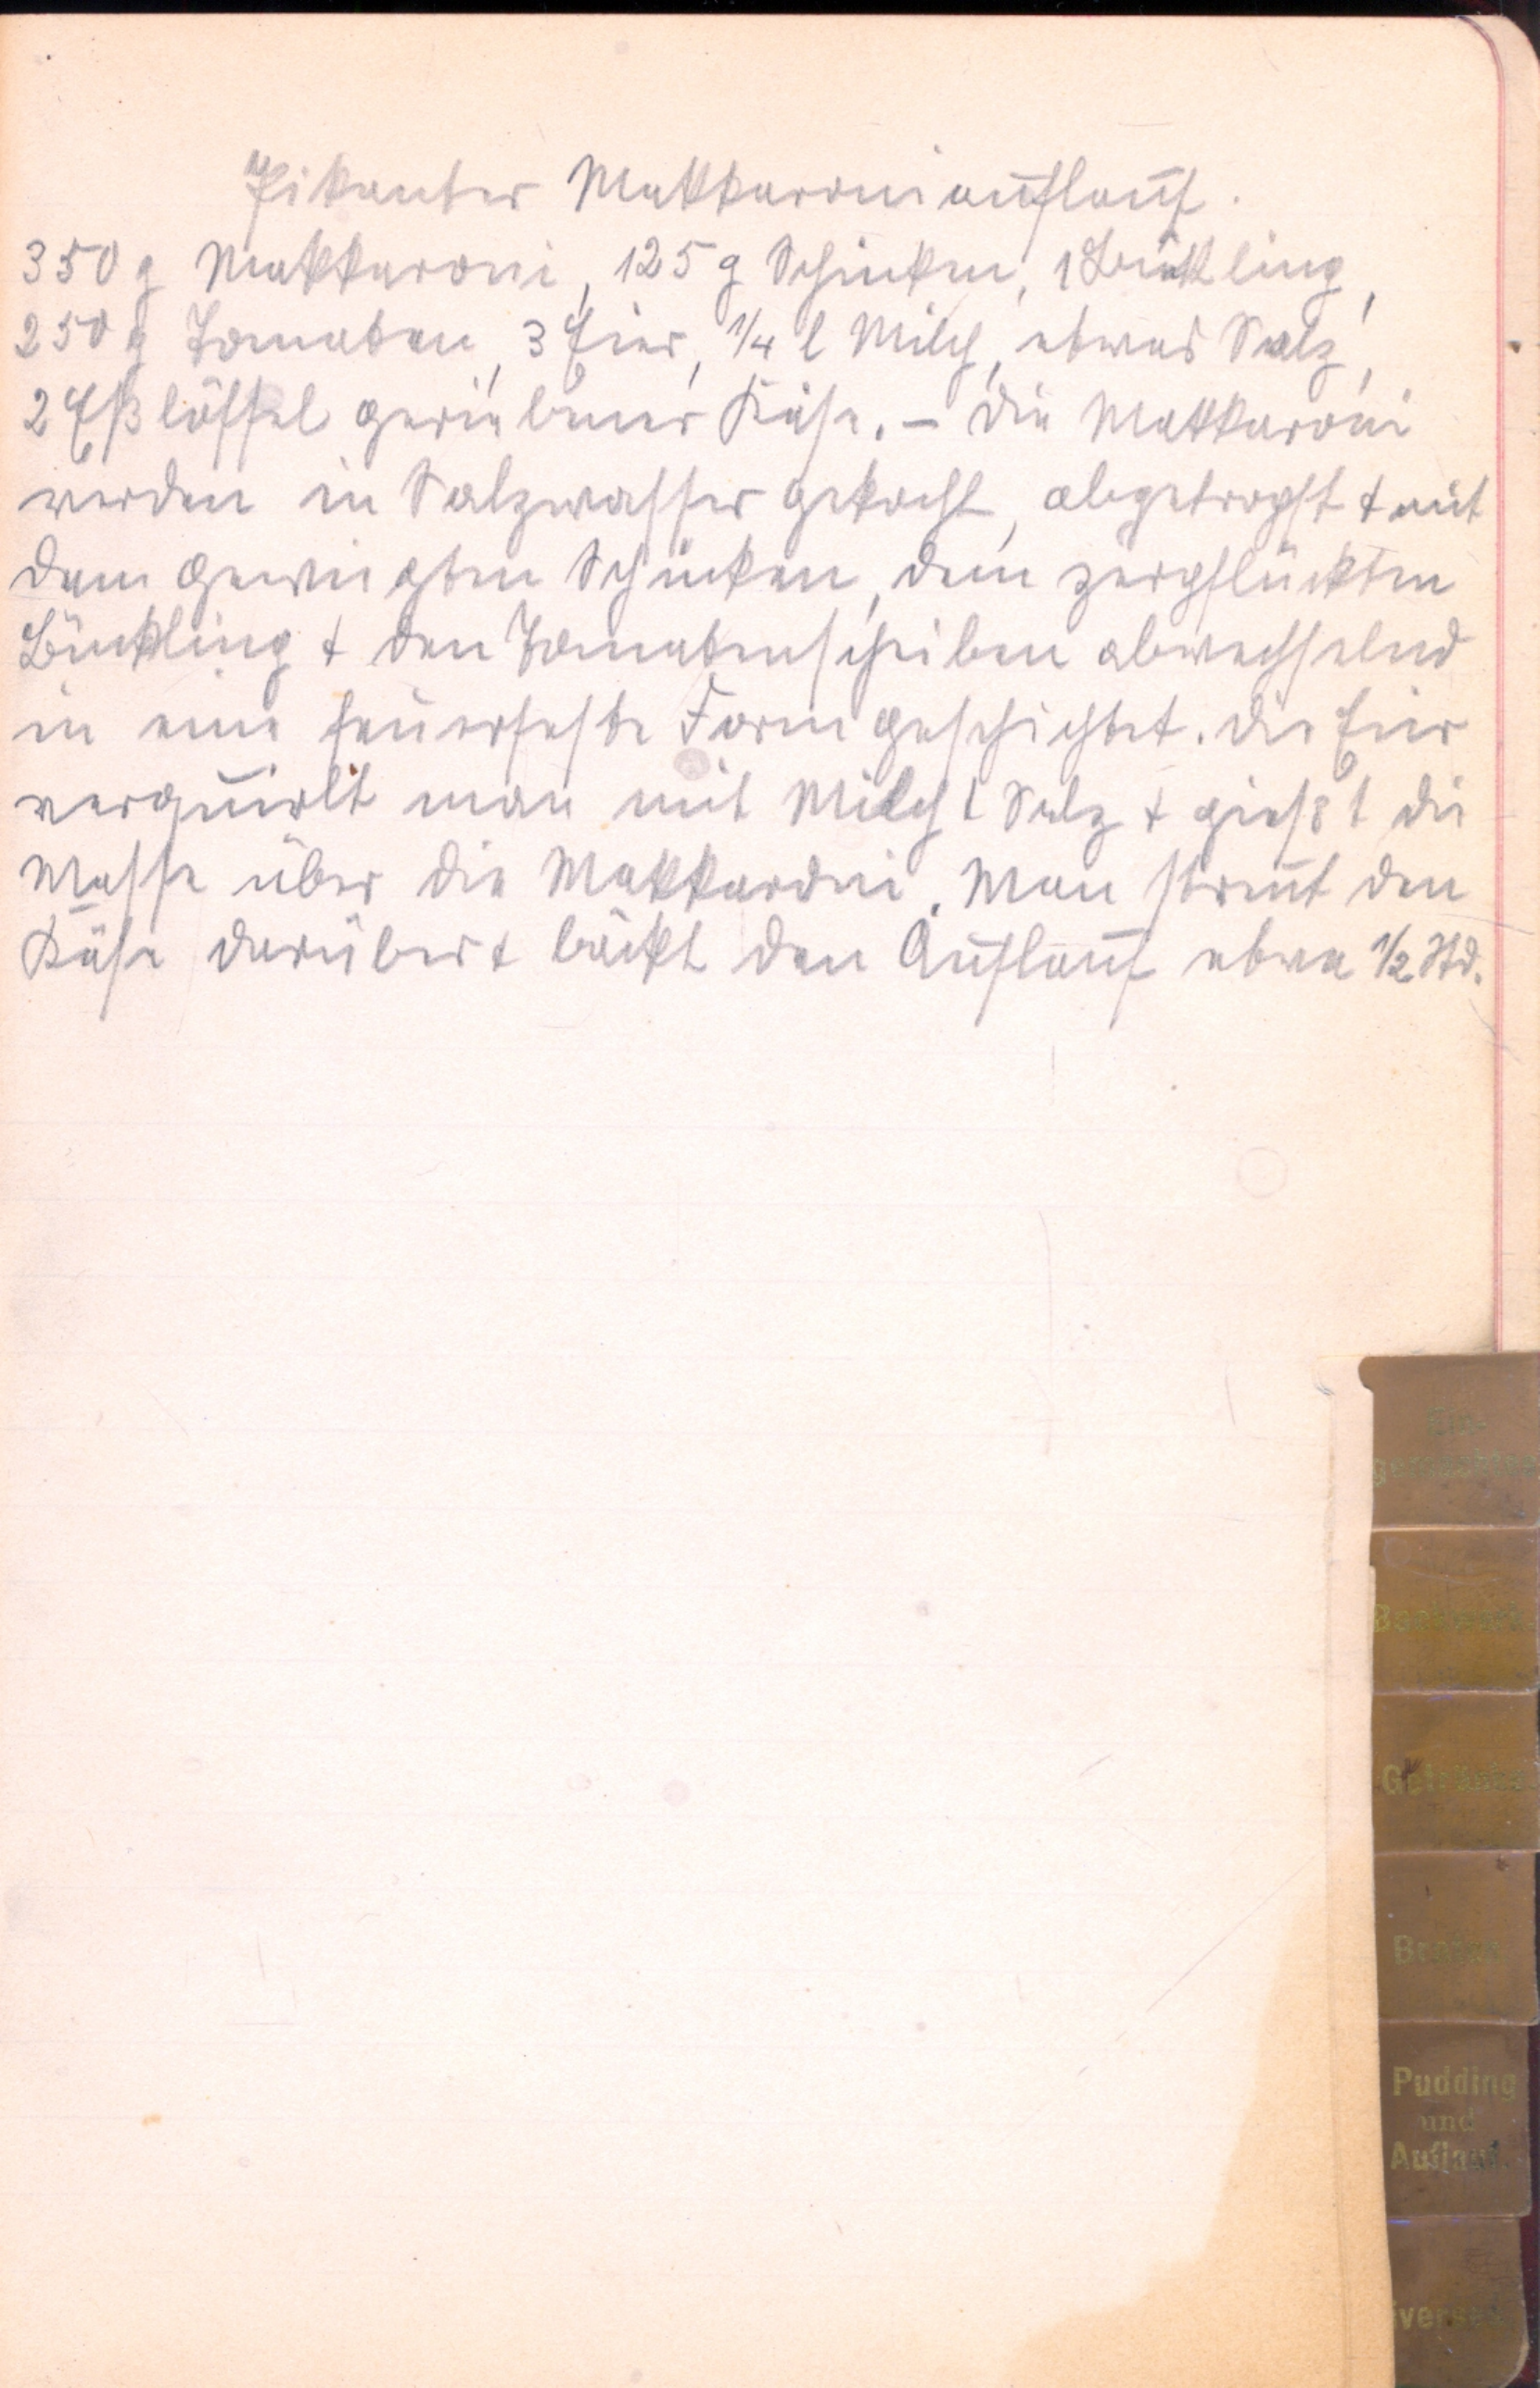 Pikanter Makkaroniauflauf.
350 g Makkaroni, 125 g Schinken, 1 Bückling,
250 g Tomaten, 3 Eier, 1/4 l Milch, etwas Salz,
2 Eßlöffel geriebener Käse. – Die Makkaroni
werden in Salzwasser gekocht, abgetropft + mit
dem gewiegten Schinken, dem zerpflückten
Bückling + den Tomatenscheiben abwechselnd
in eine feuerfeste Form geschichtet. Die Eier
verquirlt man mit Milch + Salz + gießt die
Masse über die Makkaroni. Man streut den
Käse darüber + bäckt den Auflauf etwa 1/2 Std.
Ein-
gemachtes
Backwerk
Getränke
Braten
Pudding
und
Auflauf
iverses